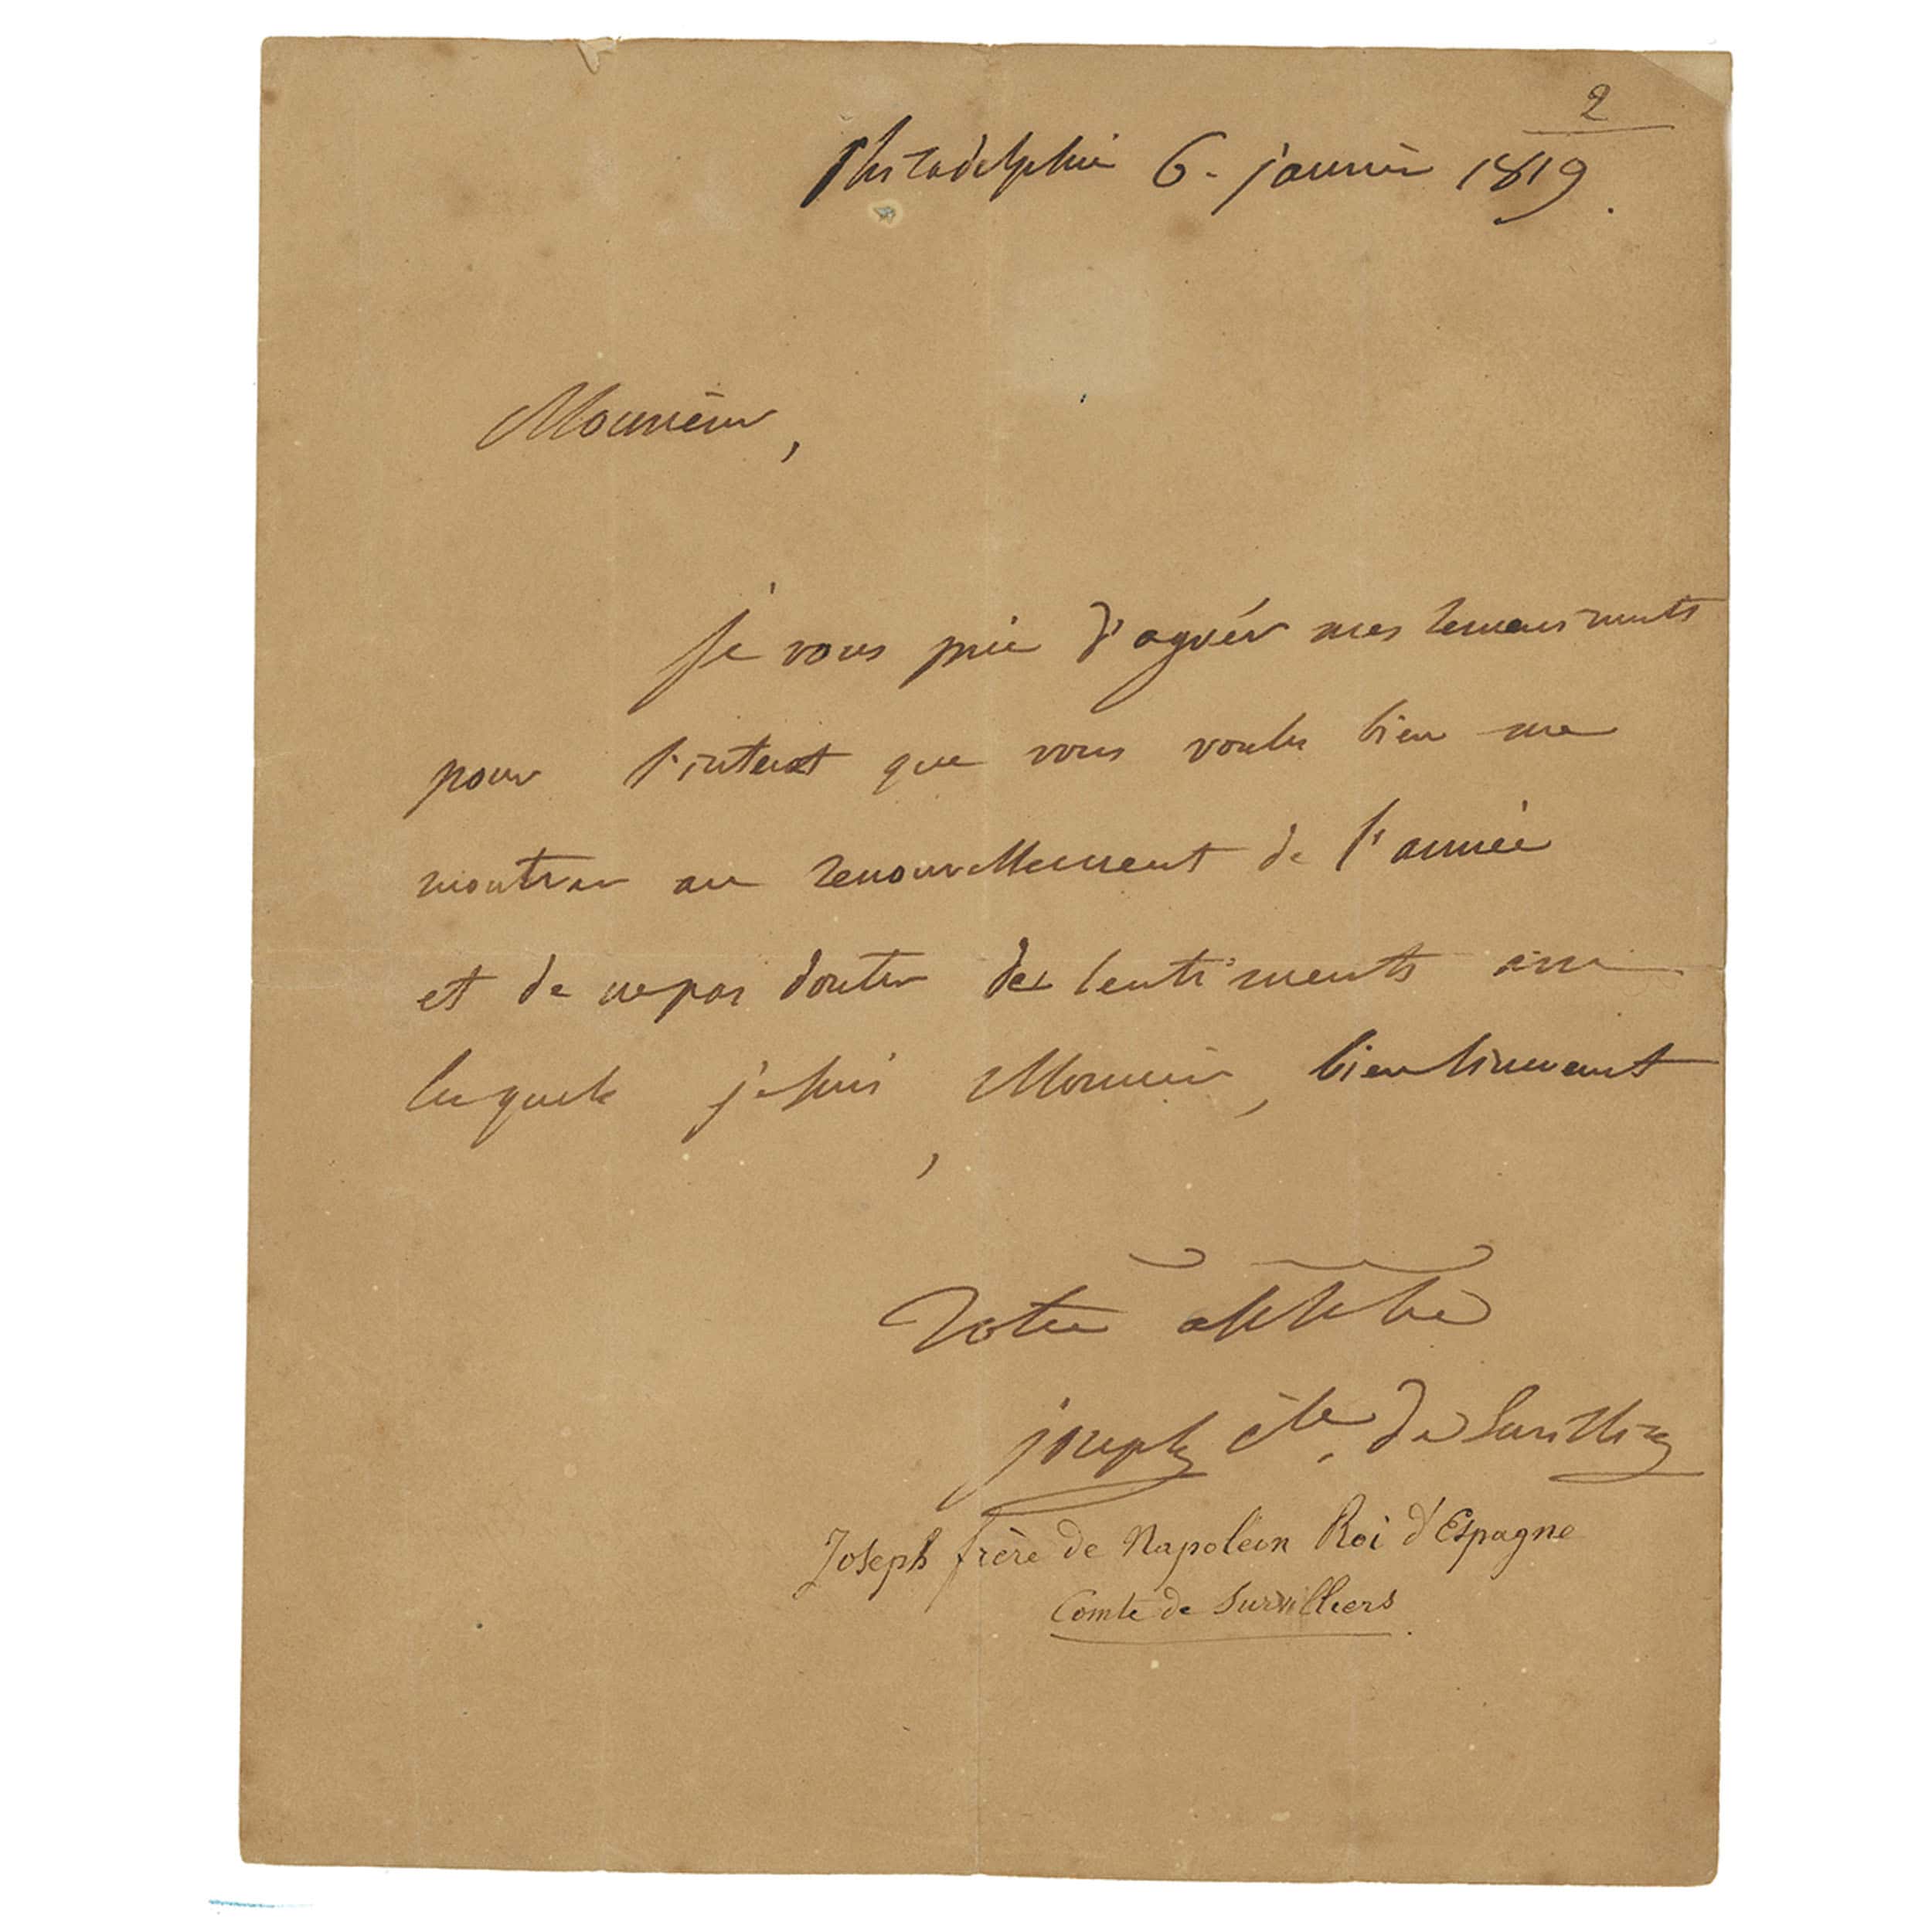 2
Philadelphie 6. janvier 1819.
Monsieur,
je vous prie d'agréer mes remerciments
pour l'interet que vous voulez bien me
montrer au renouvellement de l'année
et de ne pas douter des sentiments avec
lesquels je suis, Monsieur, bien sincerement
Votre affectné
joseph cte. de Survilliers
Joseph frère de Napoleon Roi d'Espagne
Comte de Survilliers.